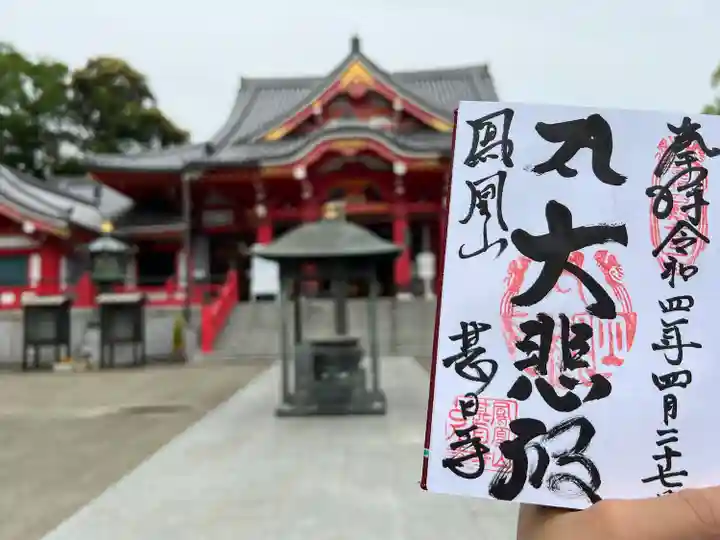 奉拝 令和四年四月二十七日
大悲殿
鳳凰山 甚目寺